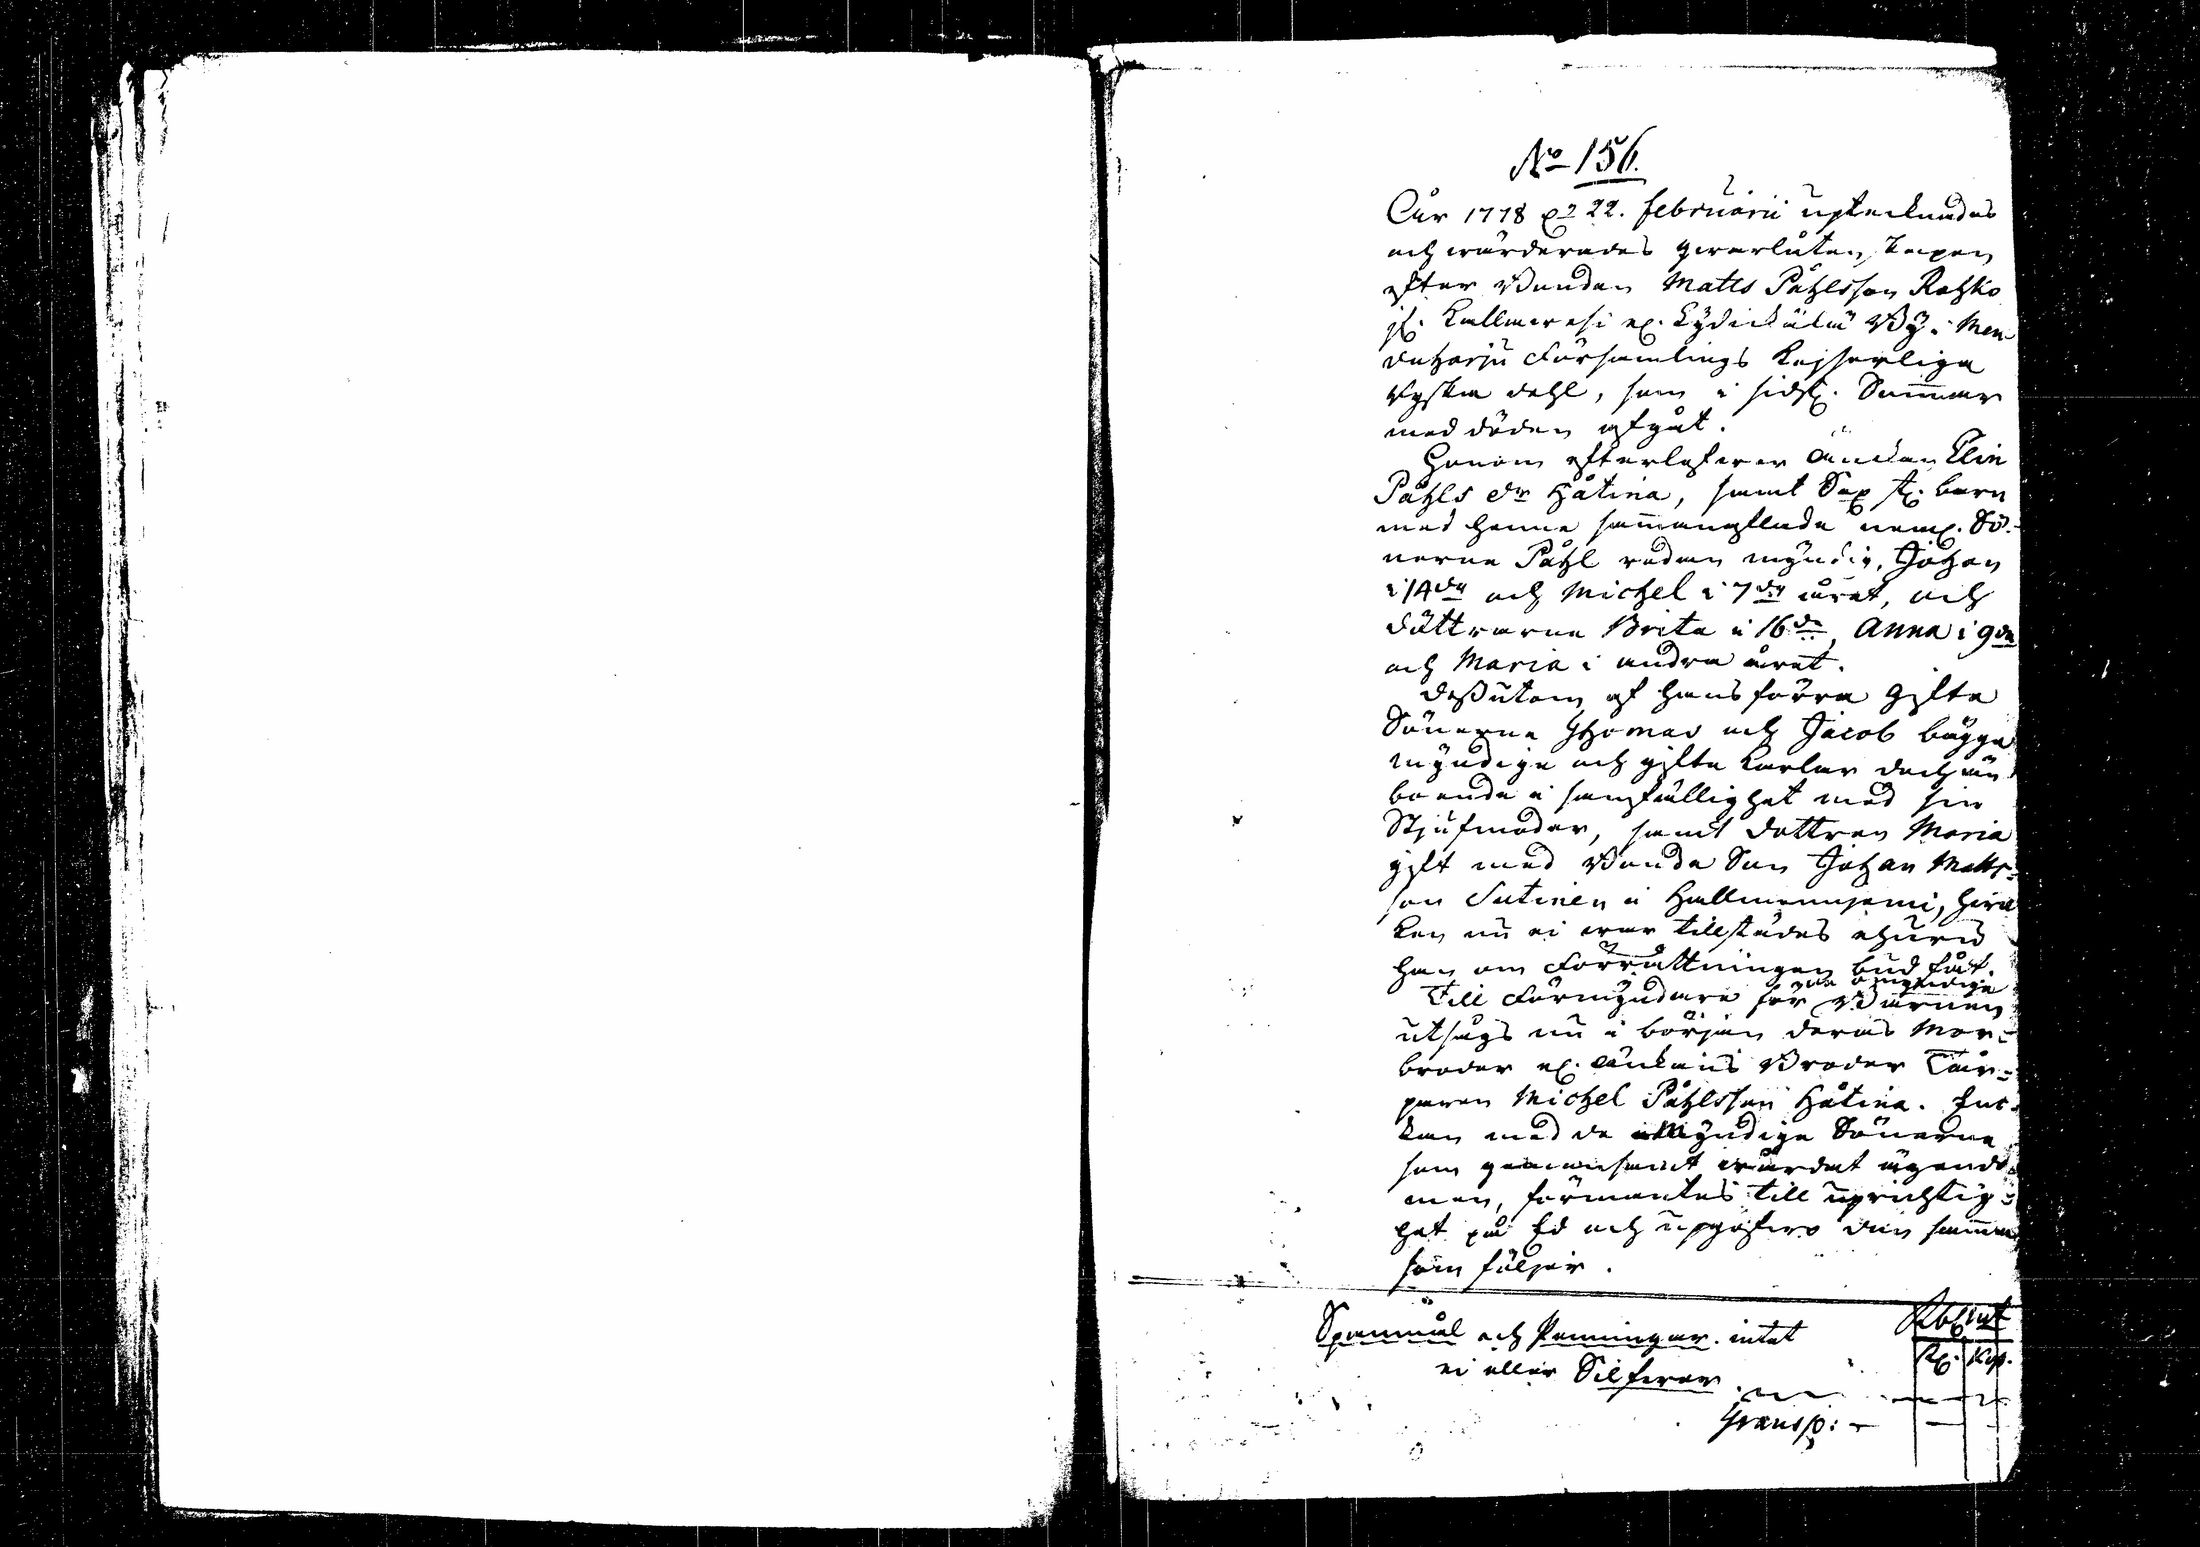 No 156.
År 1778 d 22. februarii upteknades
och wärderades qwarlåten skapen
efter Bonden Matts Påhlsson Rahko
if. Kallmaresi el. Kydenkälä By i Men
duharju Församlings Kejserliga
Ryska dehl, som i sidst. Sommar
med döden afgåt.
Honom efterlefwer Änckan Elin
Påhls dr Håtina, samt Sex st. barn
med henne sammanaflade neml. Sö-
nerne Påhl redan myndig, Johan
i 14de och Michel i 7de året, och
döttrarne Brita i 16de, Anna i 9de
och Maria i andra året.
dessutom af hans förra gifte
Sönerne Thomas och Jacob bägge
myndige och gifte Karlar doch nu
boende i samfällighet med sin
Stjufmoder, samt dottren Maria
gift med Bonde Son Johan Matts-
son Sutinen i Hallmenniemi, hwil
ken nu ei war tillstädes ehuru
han om Förrättningen bud fåt.
Till Förmyndare för de omyndige Barnen
utsågs nu i början deras Mor-
broder el. Änkans Broder Tår-
paren Michel Påhlsson Håtina. En-
kan med de Myndige Sönerne
som gemensamt wårdat ägendo-
men, förmantes till uprichtig-
het på Ed och upgåfwo den samma
som följer.
Spanmål och Penningar. intet Rbl Mt
ei eller Silfwer. Rl. Kop.
Transp: — —